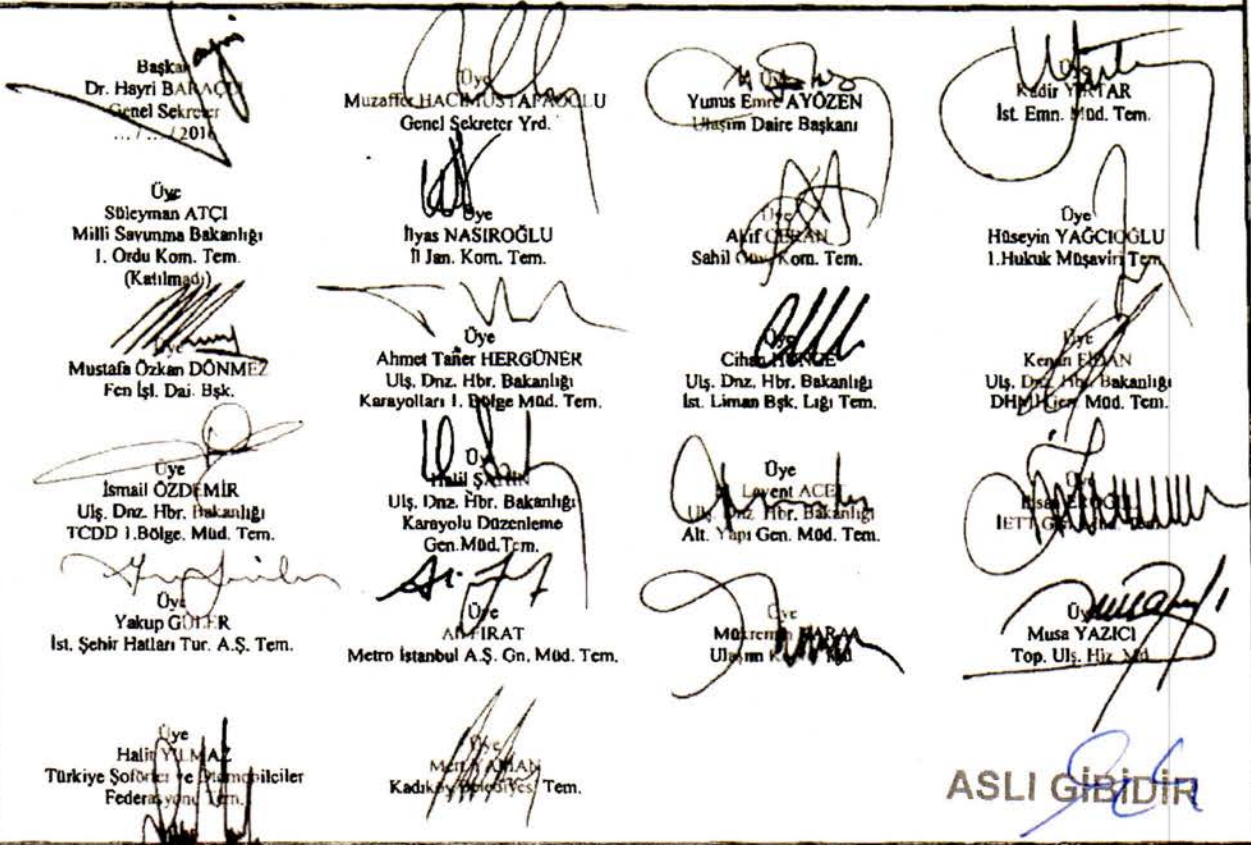 Başkan
Dr. Hayri BARAÇLI
Genel Sekreter
... / ... / 2016
Üye
Muzaffer HACIMUSTAFAOĞLU
Genel Sekreter Yrd.
Üye
Yunus Emre AYÖZEN
Ulaşım Daire Başkanı
Üye
Kadir YIRTAR
İst. Emn. Müd. Tem.
Üye
Süleyman ATÇI
Milli Savunma Bakanlığı
1. Ordu Kom. Tem.
(Katılmadı)
Üye
İlyas NASIROĞLU
İl Jan. Kom. Tem.
Üye
Akif CERAN
Sahil Güv. Kom. Tem.
Üye
Hüseyin YAĞCIOĞLU
1.Hukuk Müşaviri Tem.
Üye
Mustafa Özkan DÖNMEZ
Fen İşl. Dai. Bşk.
Üye
Ahmet Taner HERGÜNER
Ulş. Dnz. Hbr. Bakanlığı
Karayolları 1. Bölge Müd. Tem.
Üye
Cihan
Ulş. Dnz. Hbr. Bakanlığı
İst. Liman Bşk. Lığı Tem.
Üye
Kenan
Ulş. Dnz. Hbr. Bakanlığı
DHMİ Gen. Müd. Tem.
Üye
İsmail ÖZDEMİR
Ulş. Dnz. Hbr. Bakanlığı
TCDD 1.Bölge. Müd. Tem.
Üye
Halil ŞAHİN
Ulş. Dnz. Hbr. Bakanlığı
Karayolu Düzenleme
Gen.Müd.Tem.
Üye
Levent ACET
Ulş. Dnz. Hbr. Bakanlığı
Alt. Yapı Gen. Müd. Tem.
Üye
İETT
Üye
Yakup GÜLER
İst. Şehir Hatları Tur. A.Ş. Tem.
Üye
Ali FIRAT
Metro İstanbul A.Ş. Gn. Müd. Tem.
Üye
Ulaşım
Üye
Musa YAZICI
Top. Ulş. Hiz. Md.
Üye
Halit YILMAZ
Türkiye Şoförler ve Otomobilciler
Federasyonu Tem.
Üye
Mert YAMAN
Kadıköy Belediyesi Tem.
ASLI GİBİDİR